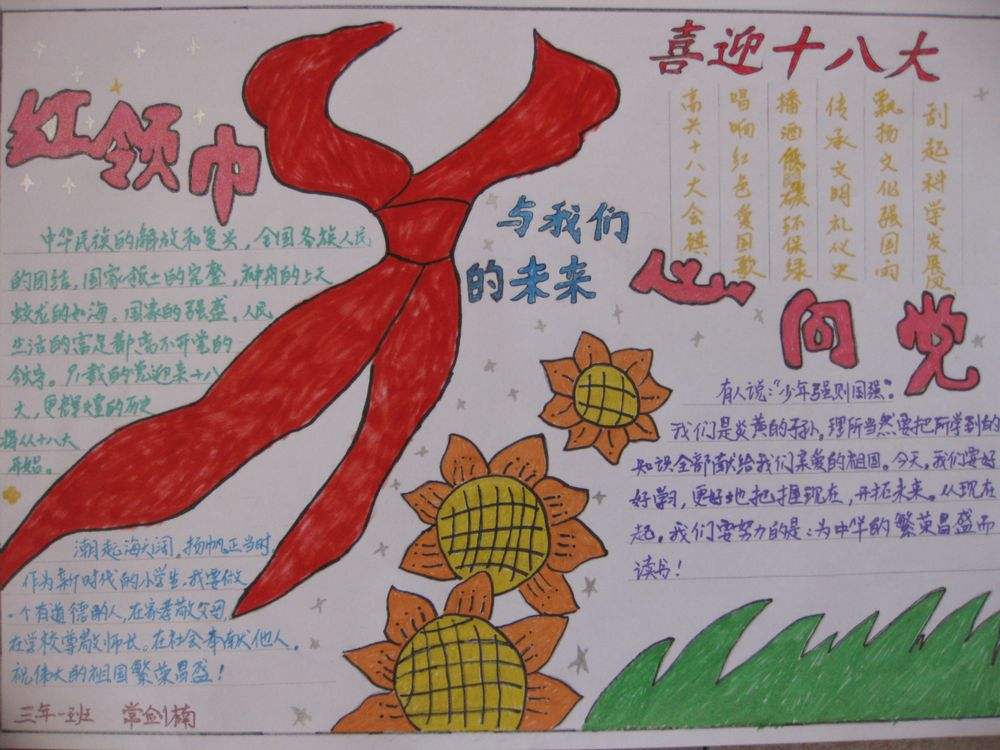 红领巾
与我们
的未来
中华民族的解放和复兴，全国各族人民
的团结，国家领土的完整，神舟的上天
蛟龙的如海。国家的强盛。人民
生活的富足都离不开党的
领导。引载的党迎来十八
大，更辉煌的历史
将从十八大
开始。
潮起海天阔，扬帆正当时，
作为新时代的小学生，我要做
一个有道德的人，在家孝敬父母，
在学校尊敬师长。在社会奉献他人。
祝伟大的祖国繁荣昌盛！
三年一班 常剑楠
喜迎十八大
刮起科学发展风
飘扬文化强国雨
传承文明礼仪史
播洒低碳环保绿
唱响红色爱国歌
高举十八大会旗
心向党
有人说：“少年强则国强”。
我们是炎黄的子孙，理所当然要把所学到的
知识全部献给我们亲爱的祖国。今天，我们要好
好学习，更好地把握现在，开拓未来。从现在
起，我们要努力的是：为中华的繁荣昌盛而
读书！